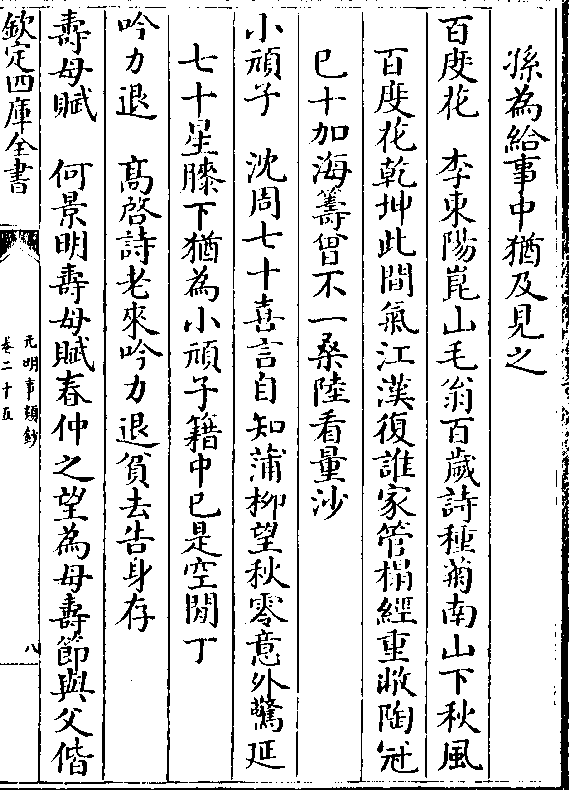 孫為給事中猶及見之
百度花　李東陽崑山毛翁百歲詩種菊南山下秋風
百度花乾坤此間氣江漢復誰家管榻經重啟陶冠
巳十加海籌曾不一桑陸看量沙
小頑子　沈周七十喜言自知蒲柳望秋零意外驚延
七十星膝下猶為小頑子籍中已是空閒丁
吟力退　髙啓詩老來吟力退貧去告身存
壽母賦　何景明壽母賦春仲之望為母壽節與父偕
欽定四庫全書
元明事類鈔
卷二十五
八